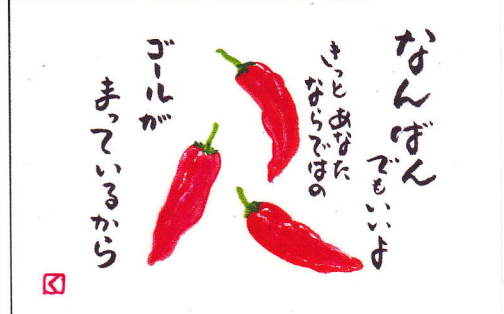 なんばん
でもいいよ
きっとあなた
ならではの
ゴールが
まっているから
く